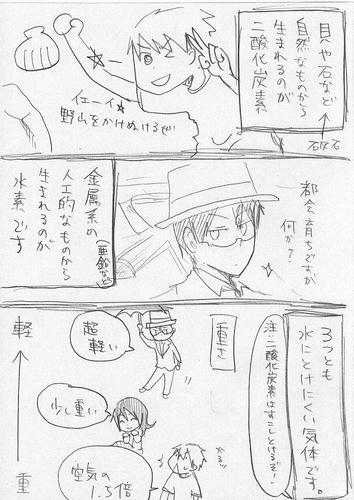 貝や石など
自然なものから
生まれるのが
二酸化炭素
石灰石
イエーイ☆
野山をかけぬけるぜ!
都会育ちですが
何か?
金属系の
(亜鉛など)
人工的なものから
生まれるのが
水素です
3つとも
水にとけにくい気体です。
注:二酸化炭素はすこしとけるぞ!
重さ
超軽い
少し重い
空気の
1.5倍
軽
重